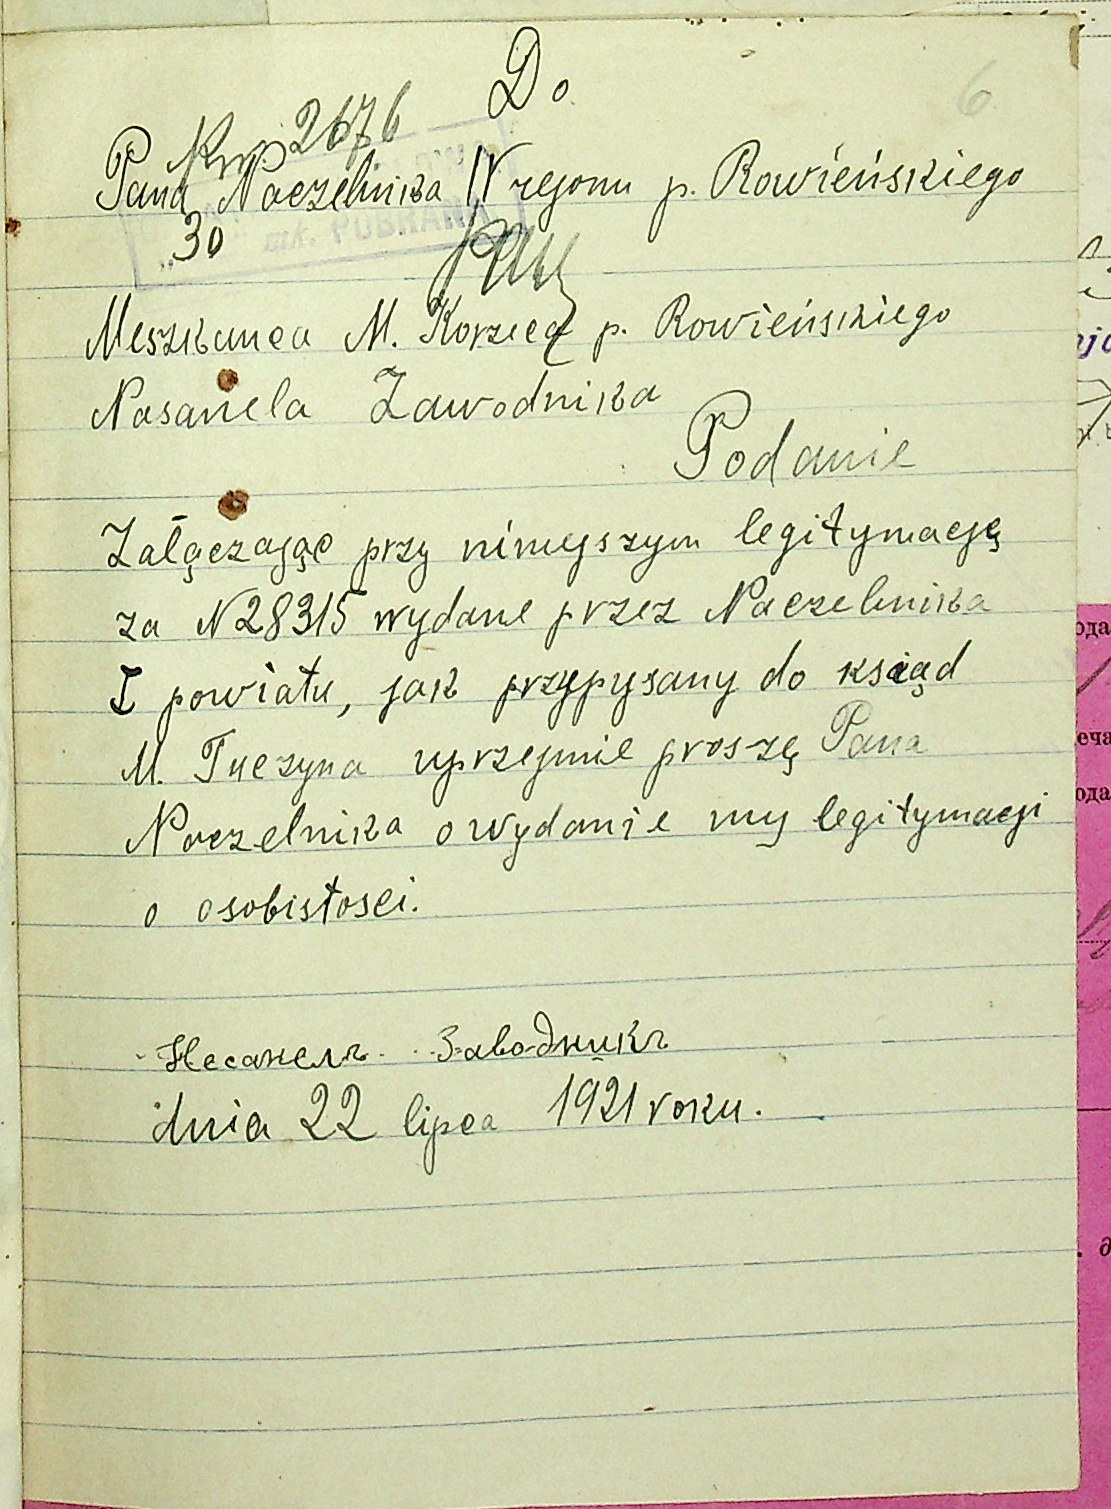 6
Do
2676
Pana Naczelnika IV rejonu p. Rowieńskiego
30
mk. POBRANA
Meszkanca M. Korzec p. Rowieńskiego
Nasanela Zawodnika
Podanie
Załączając przy niniejszym legitymację
za N 28315 wydane przez Naczelnika
I powiatu, jak przypysany do ksiąd
M. Tuczyna uprzejmie proszę Pana
Naczelnika o wydanie my legitymacji
o osobistosci.
Несанель Заводникъ
dnia 22 lipca 1921 roku.